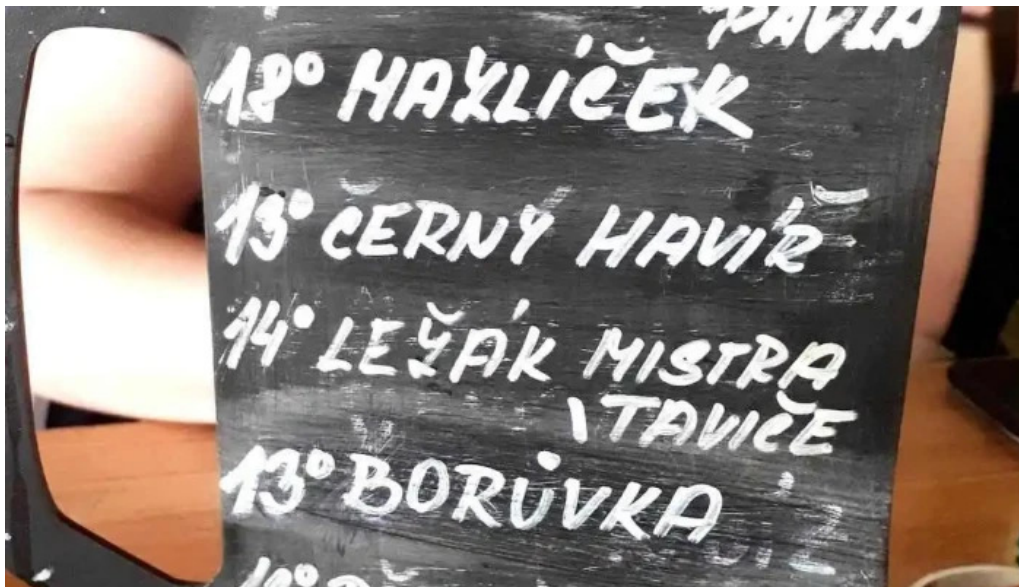 PAVLA
18° HAXLÍČEK
13° ČERNÝ HAVÍŘ
14° LEŽÁK MISTRA
TAVIČE
13° BORŮVKA